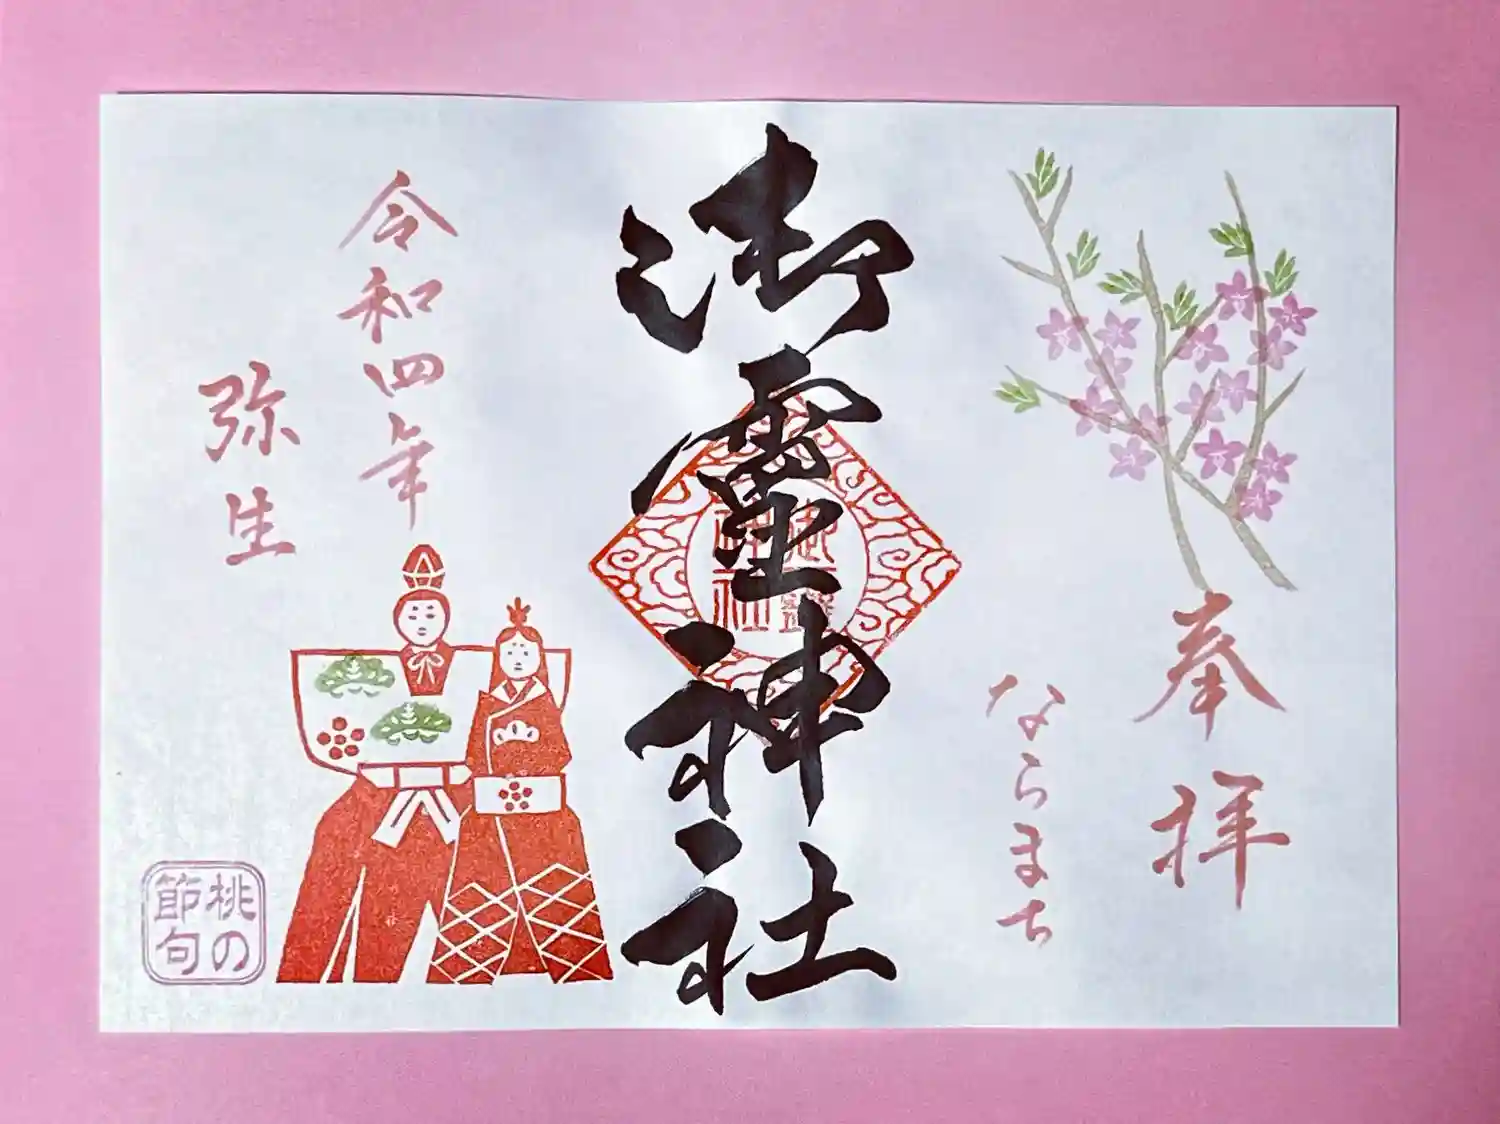 奉拝
ならまち
御霊神社
御霊
神社
令和四年
弥生
桃の
節句